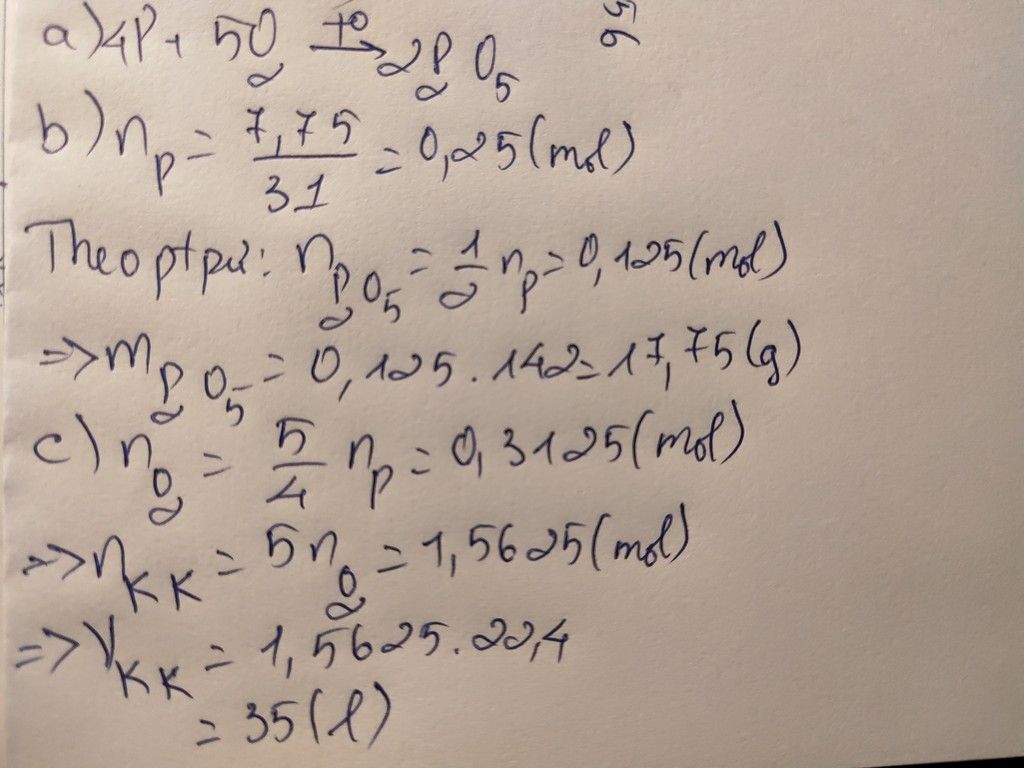 a) 4P + 5O₂ →(t⁰) 2P₂O₅
b) nₚ = 7,75/31 = 0,25 (mol)
Theo ptpư: n P₂O₅ = 1/2 nₚ = 0,125 (mol)
=> m P₂O₅ = 0,125 . 142 = 17,75 (g)
c) n O₂ = 5/4 nₚ = 0,3125 (mol)
=> n KK = 5 n O₂ = 1,5625 (mol)
=> V KK = 1,5625 . 22,4
= 35 (l)